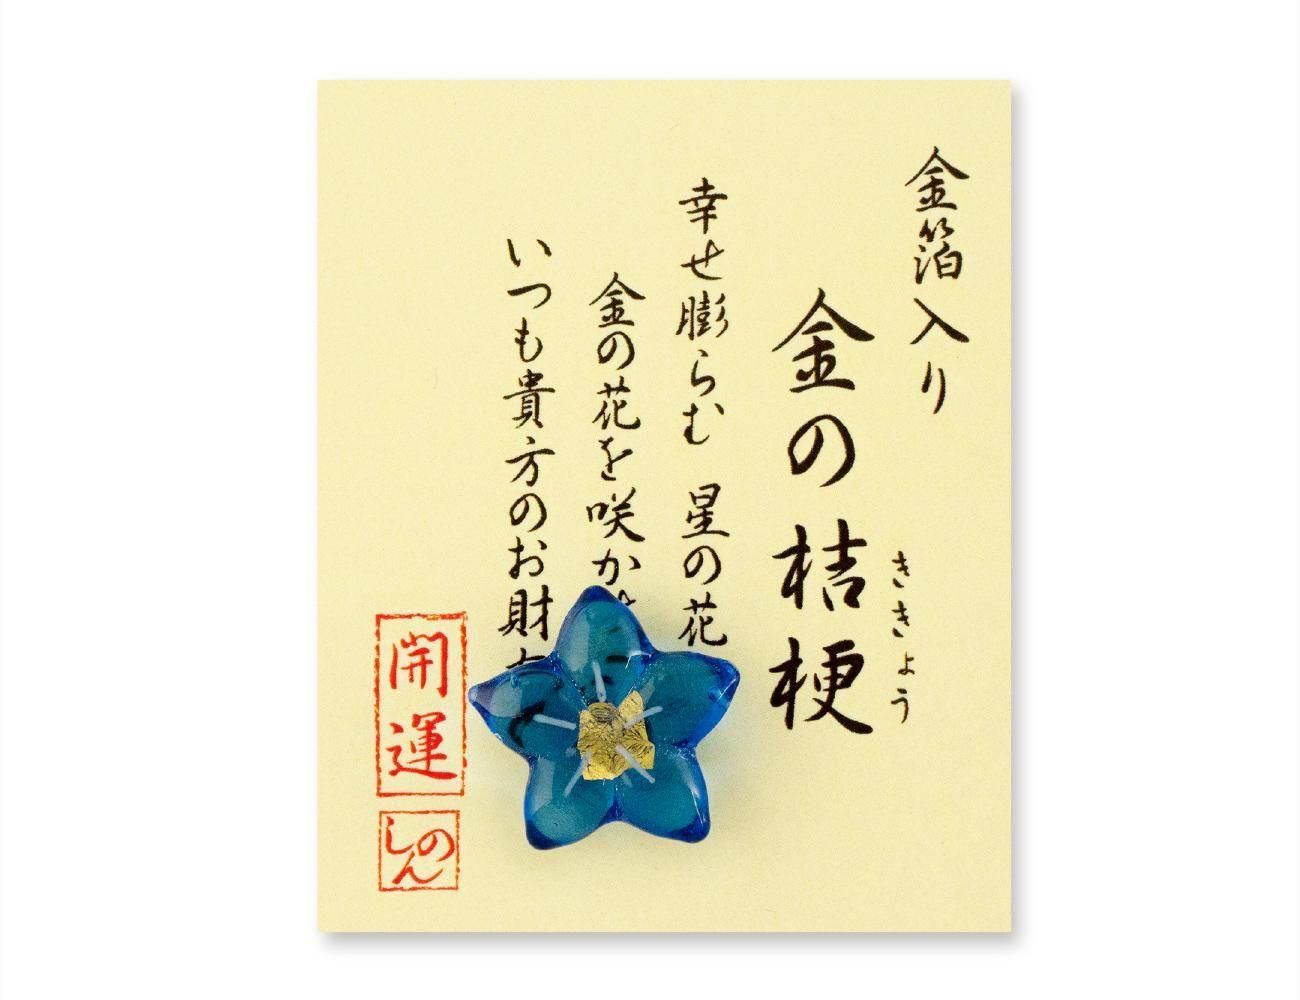 金箔入り
金の桔梗
ききょう
幸せ膨らむ 星の花
金の花を咲か
いつも貴方のお財
開運
しのん